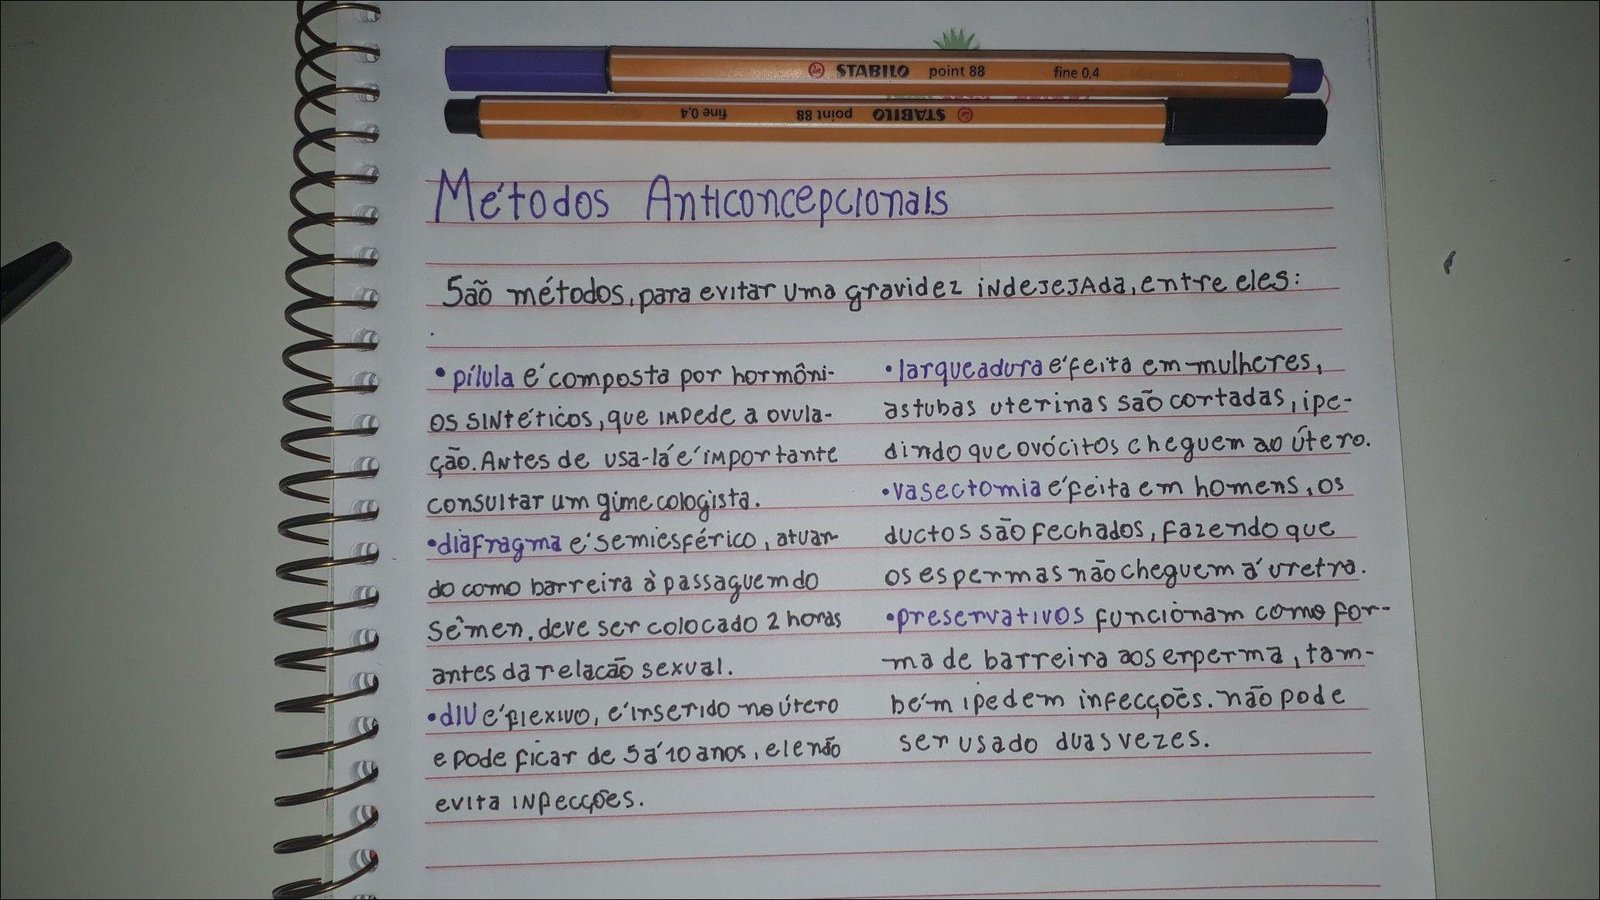 STABILO point 88 fine 0,4
STABILO point 88 fine 0,4
Métodos Anticoncepcionais
São métodos, para evitar uma gravidez indejejada, entre eles:
• pílula é composta por hormôni-
os sintéticos, que impede a ovula-
ção. Antes de usa-lá é importante
consultar um gimecologista.
• diafragma é semiesférico, atuan-
do como barreira à passaguem do
sêmen. deve ser colocado 2 horas
antes da relacão sexual.
• dIU é flexivo, é inserido no útero
e pode ficar de 5 á 10 anos, ele não
evita infecções.
• larqueadura é feita em mulheres,
as tubas uterinas são cortadas, ipe-
dindo que ovócitos cheguem ao útero.
• vasectomia é feita em homens, os
ductos são fechados, fazendo que
os espermas não cheguem á uretra.
• preservativos funcionam como for-
ma de barreira aos erperma, tam-
bém ipedem infecções. não pode
ser usado duas vezes.